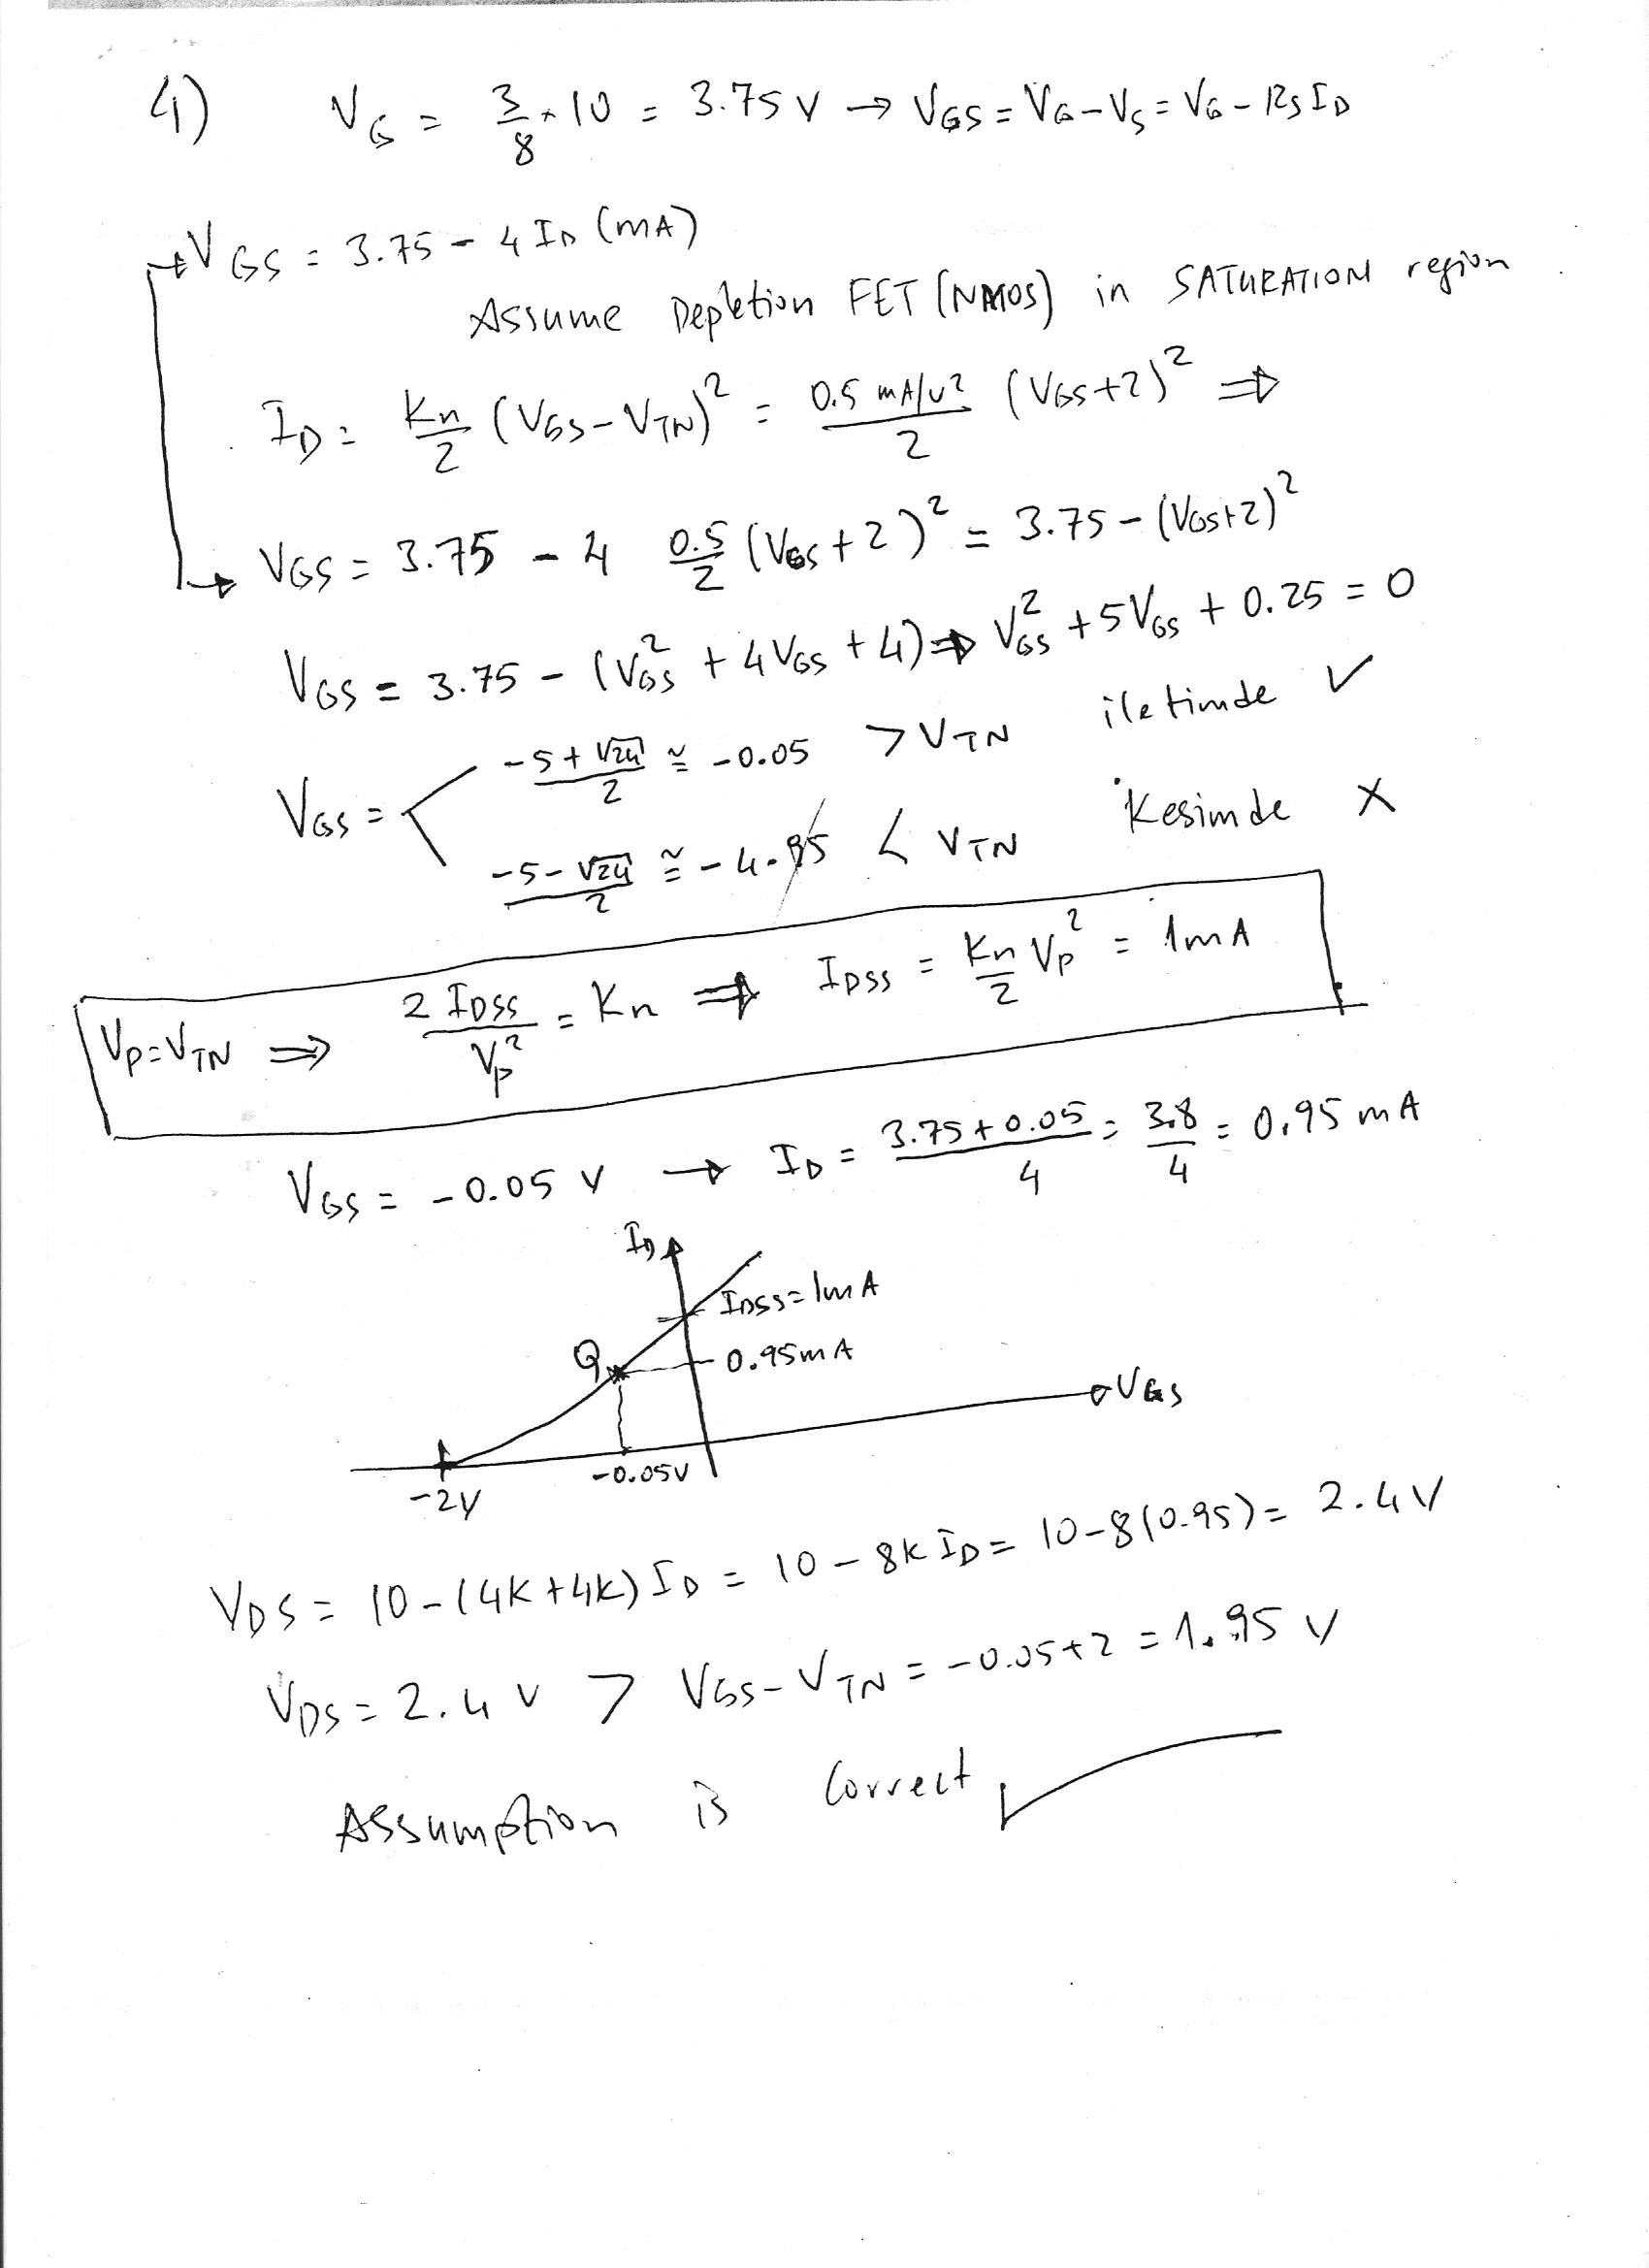 4) V_G = 3/8 * 10 = 3.75 V → V_GS = V_G - V_S = V_G - R_S I_D
V_GS = 3.75 - 4 I_D (mA)
Assume Depletion FET (NMOS) in SATURATION region
I_D = Kn/2 (V_GS - V_TN)² = 0.5 mA/v²/2 (V_GS + 2)² ⇒
V_GS = 3.75 - 4 0.5/2 (V_GS + 2)² = 3.75 - (V_GS + 2)²
V_GS = 3.75 - (V_GS² + 4 V_GS + 4) ⇒ V_GS² + 5 V_GS + 0.25 = 0
-5 + √24 / 2 ≅ -0.05 > V_TN iletimde ✓
V_GS =
-5 - √24 / 2 ≅ -4.95 < V_TN Kesimde X
V_P = V_TN ⇒ 2 I_DSS / V_P² = Kn ⇒ I_DSS = Kn/2 V_P² = 1mA
V_GS = -0.05 V → I_D = 3.75 + 0.05 / 4 = 3.8 / 4 = 0.95 mA
I_D
I_DSS = 1mA
Q
0.95mA
V_GS
-0.05V
-2V
V_DS = 10 - (4K + 4K) I_D = 10 - 8K I_D = 10 - 8(0.95) = 2.4 V
V_DS = 2.4 V > V_GS - V_TN = -0.05 + 2 = 1.95 V
Assumption is Correct ✓